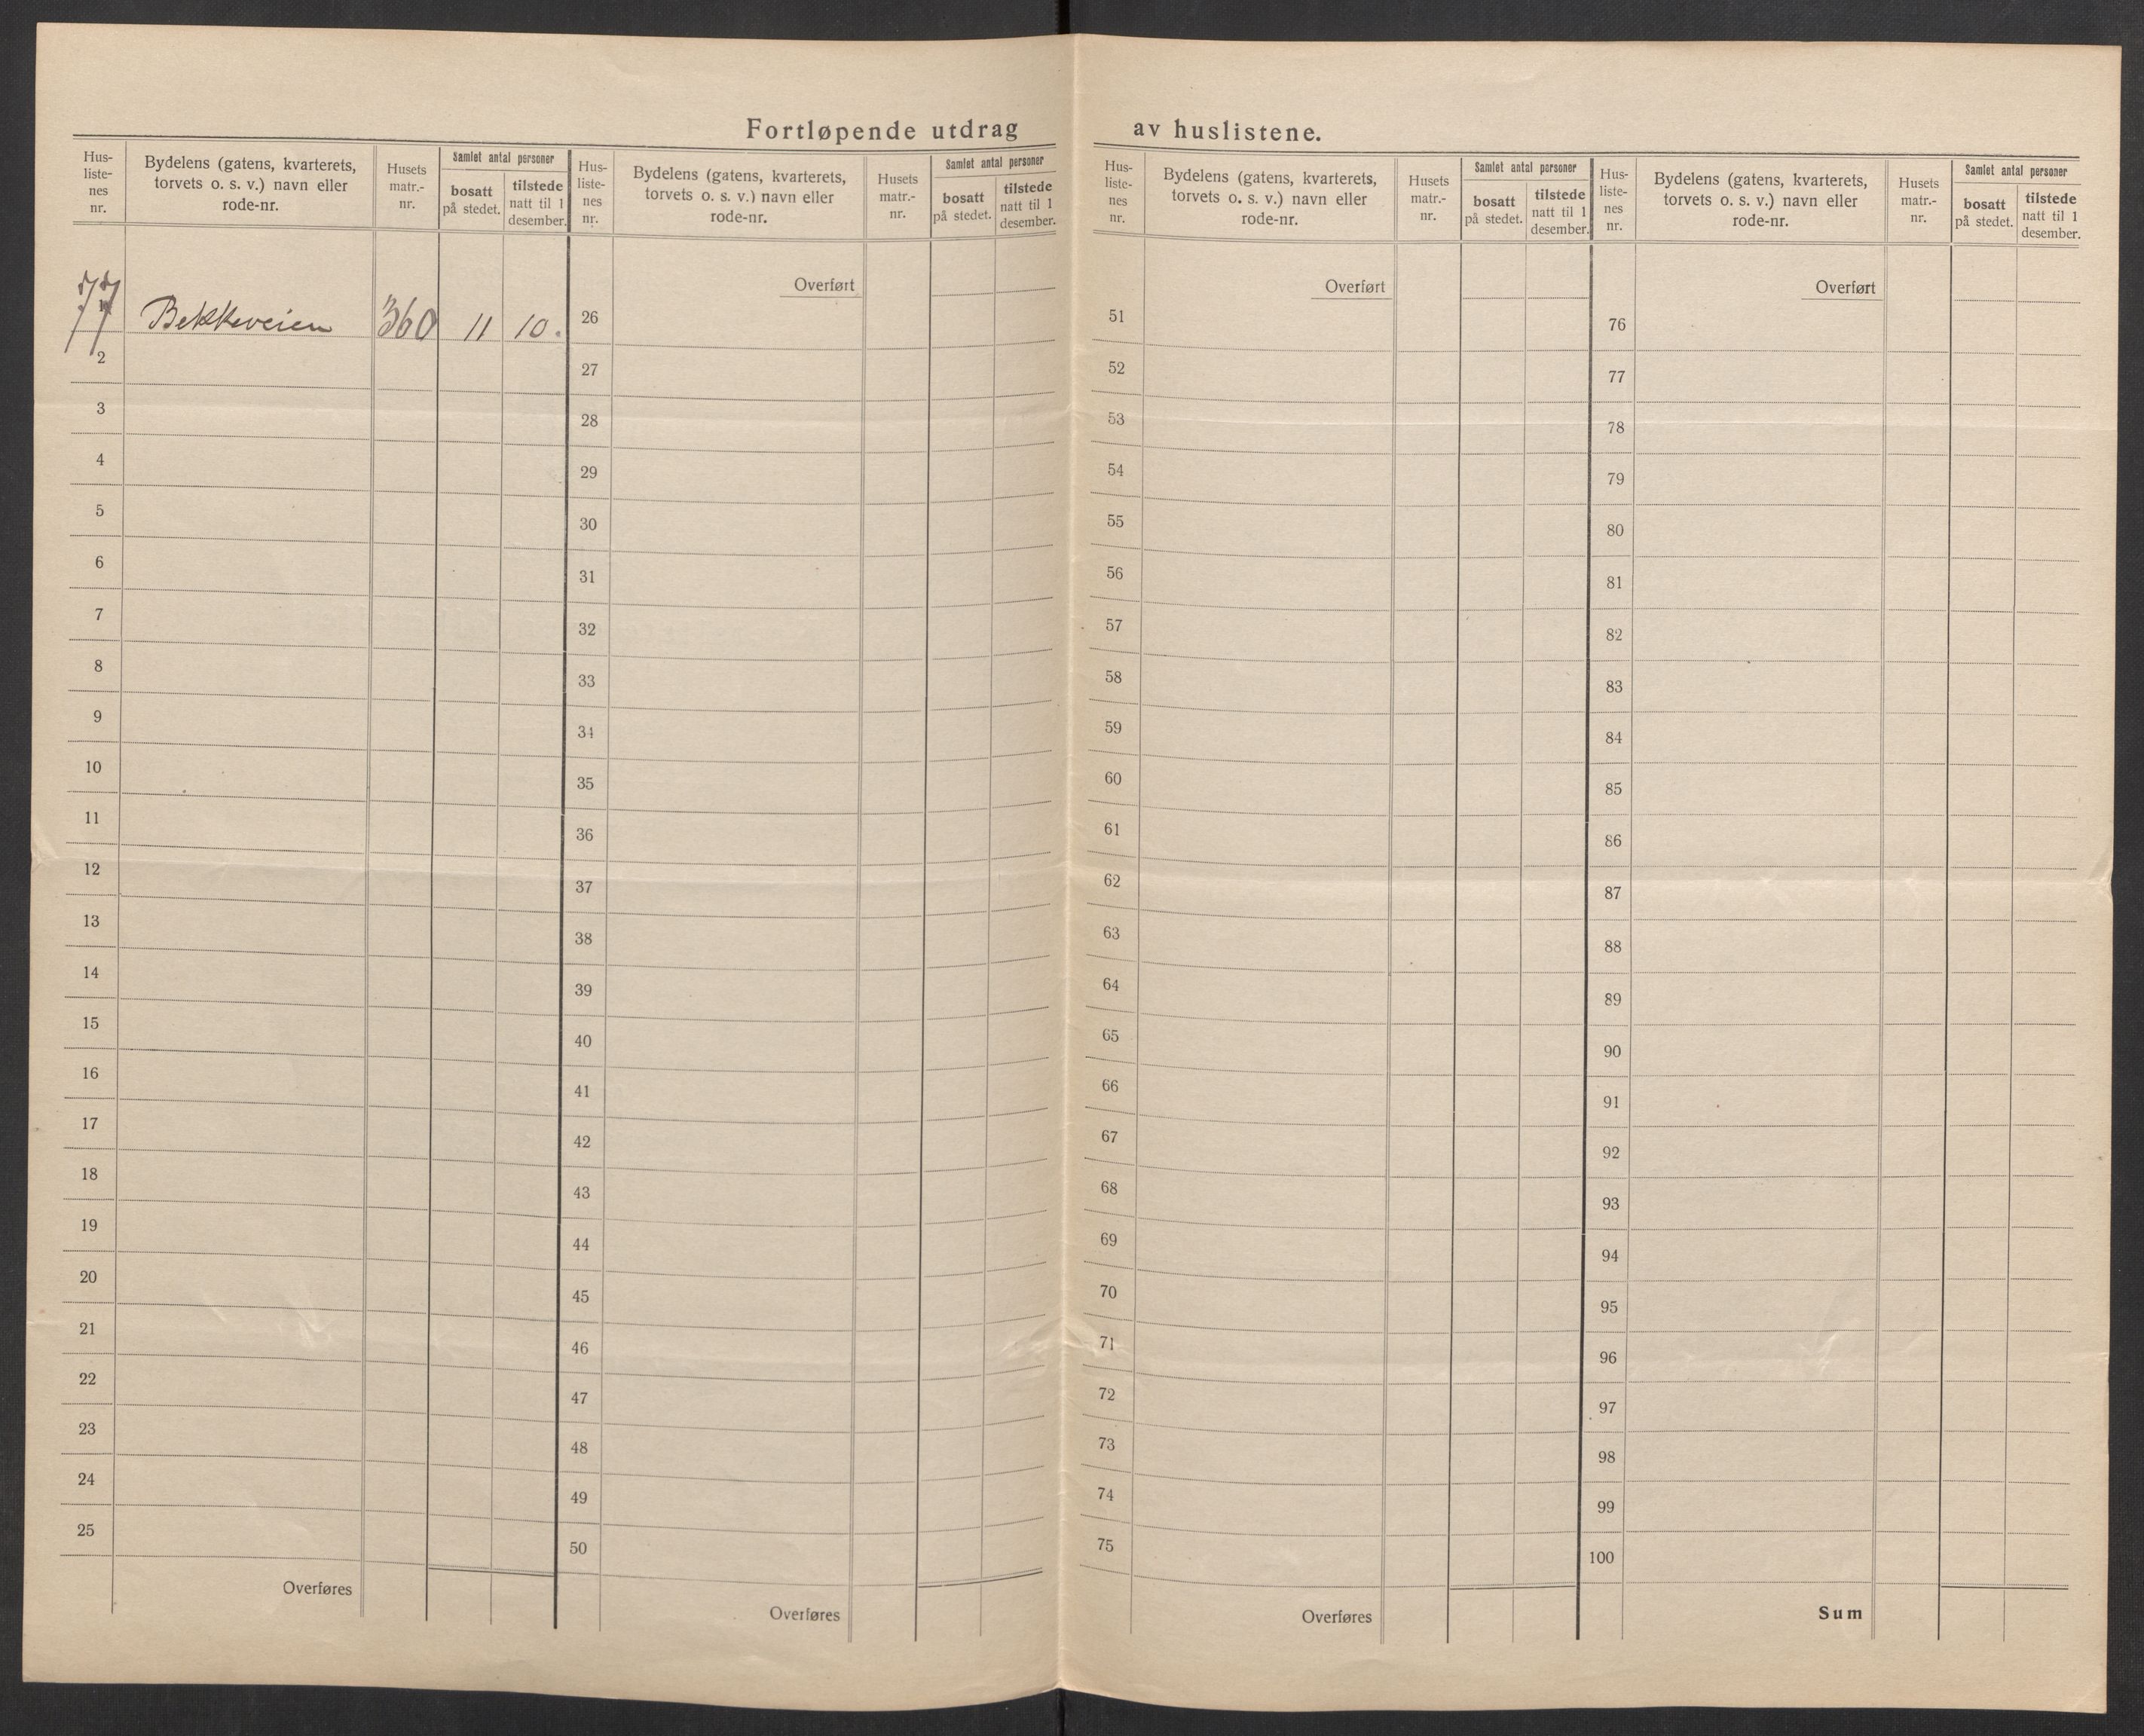 Fortløpende utdrag av huslistene.
Hus-
liste-
nes
nr.
Bydelens (gatens, kvarterets,
torvets o. s. v.) navn eller
rode-nr.
Husets
matr.-
nr.
Samlet antal personer
bosatt
på stedet.
tilstede
natt til 1
desember.
77 Bekkeveien 360 11 10.
2
3
4
5
6
7
8
9
10
11
12
13
14
15
16
17
18
19
20
21
22
23
24
25
Overføres
Hus-
liste-
nes
nr.
Bydelens (gatens, kvarterets,
torvets o. s. v.) navn eller
rode-nr.
Husets
matr.-
nr.
Samlet antal personer
bosatt
på stedet.
tilstede
natt til 1
desember.
Overført
26
27
28
29
30
31
32
33
34
35
36
37
38
39
40
41
42
43
44
45
46
47
48
49
50
Overføres
Hus-
liste-
nes
nr.
Bydelens (gatens, kvarterets,
torvets o. s. v.) navn eller
rode-nr.
Husets
matr.-
nr.
Samlet antal personer
bosatt
på stedet.
tilstede
natt til 1
desember.
Overført
51
52
53
54
55
56
57
58
59
60
61
62
63
64
65
66
67
68
69
70
71
72
73
74
75
Overføres
Hus-
liste-
nes
nr.
Bydelens (gatens, kvarterets,
torvets o. s. v.) navn eller
rode-nr.
Husets
matr.-
nr.
Samlet antal personer
bosatt
på stedet.
tilstede
natt til 1
desember.
Overført
76
77
78
79
80
81
82
83
84
85
86
87
88
89
90
91
92
93
94
95
96
97
98
99
100
Sum